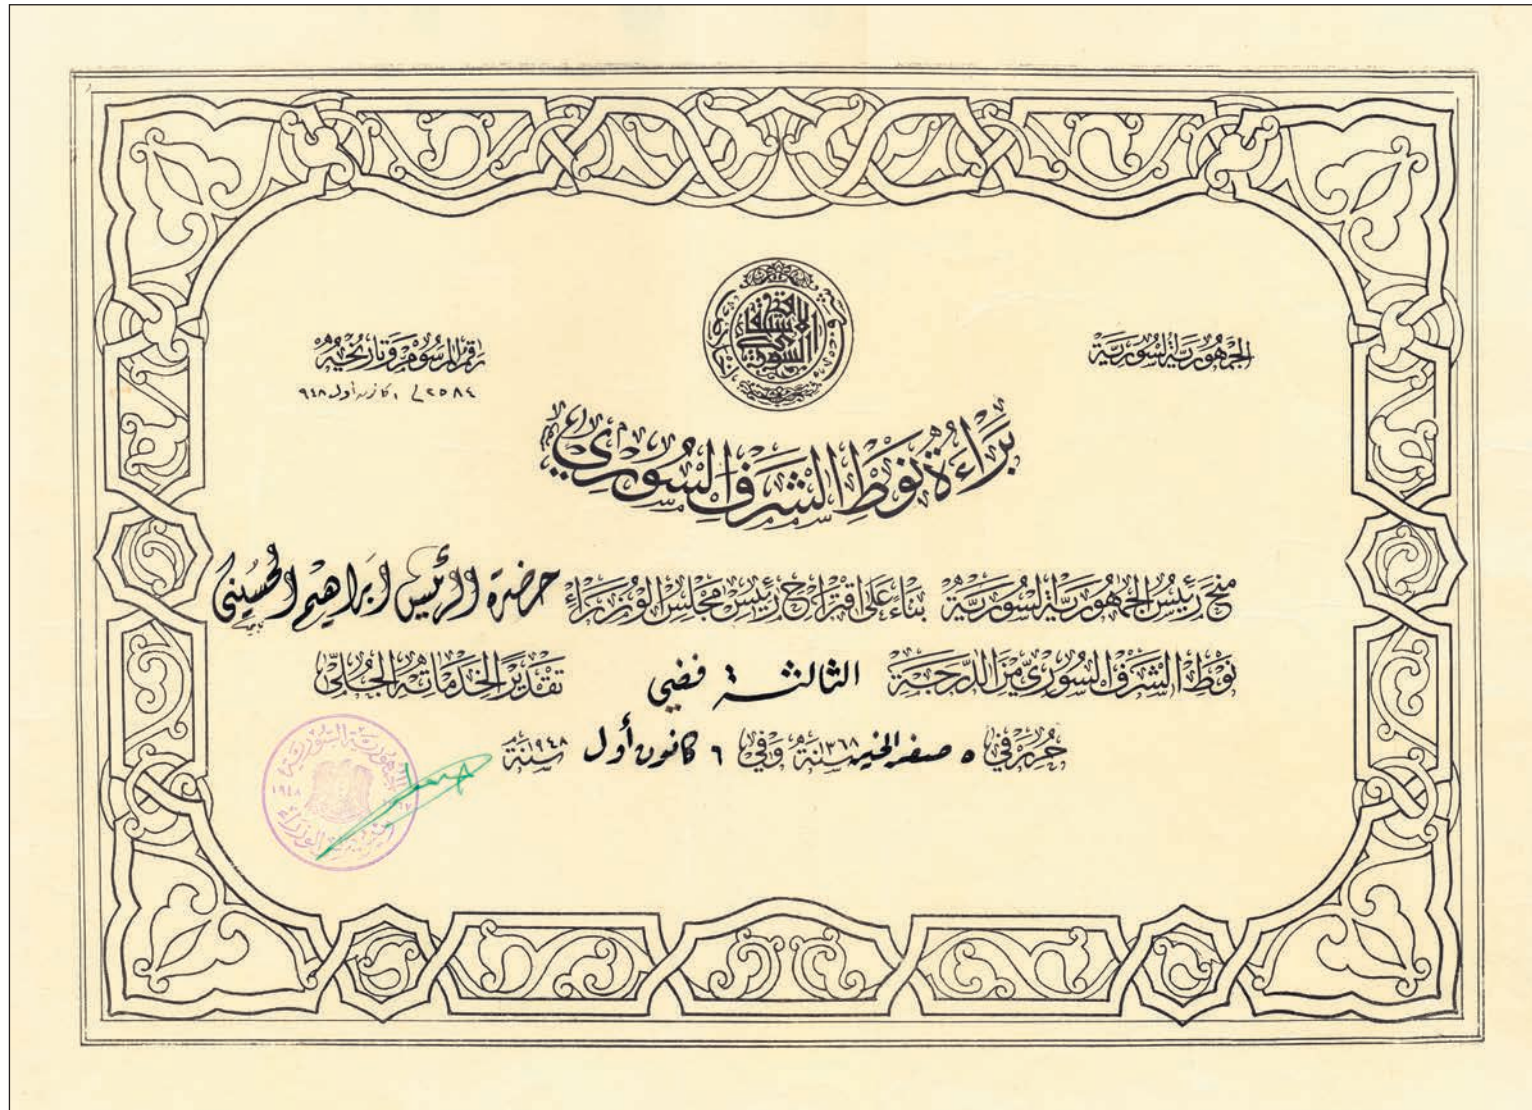 الجمهورية السورية
رقم المرسوم وتاريخه
٢٥٨٤ / ١ كانون أول ٩٤٨
براءة نوط الشرف السوري
منح رئيس الجمهورية السورية بناء على اقتراح رئيس مجلس الوزراء حضرة الرئيس ابراهيم الحسيني
نوط الشرف السوري من الدرجة الثالثة فضي تقدير الخدماته الجلى
حرر في ٥ صفر الخير سنة ١٣٦٨ وفي ٦ كانون أول سنة ١٩٤٨
الجمهورية السورية
١٩٤٨